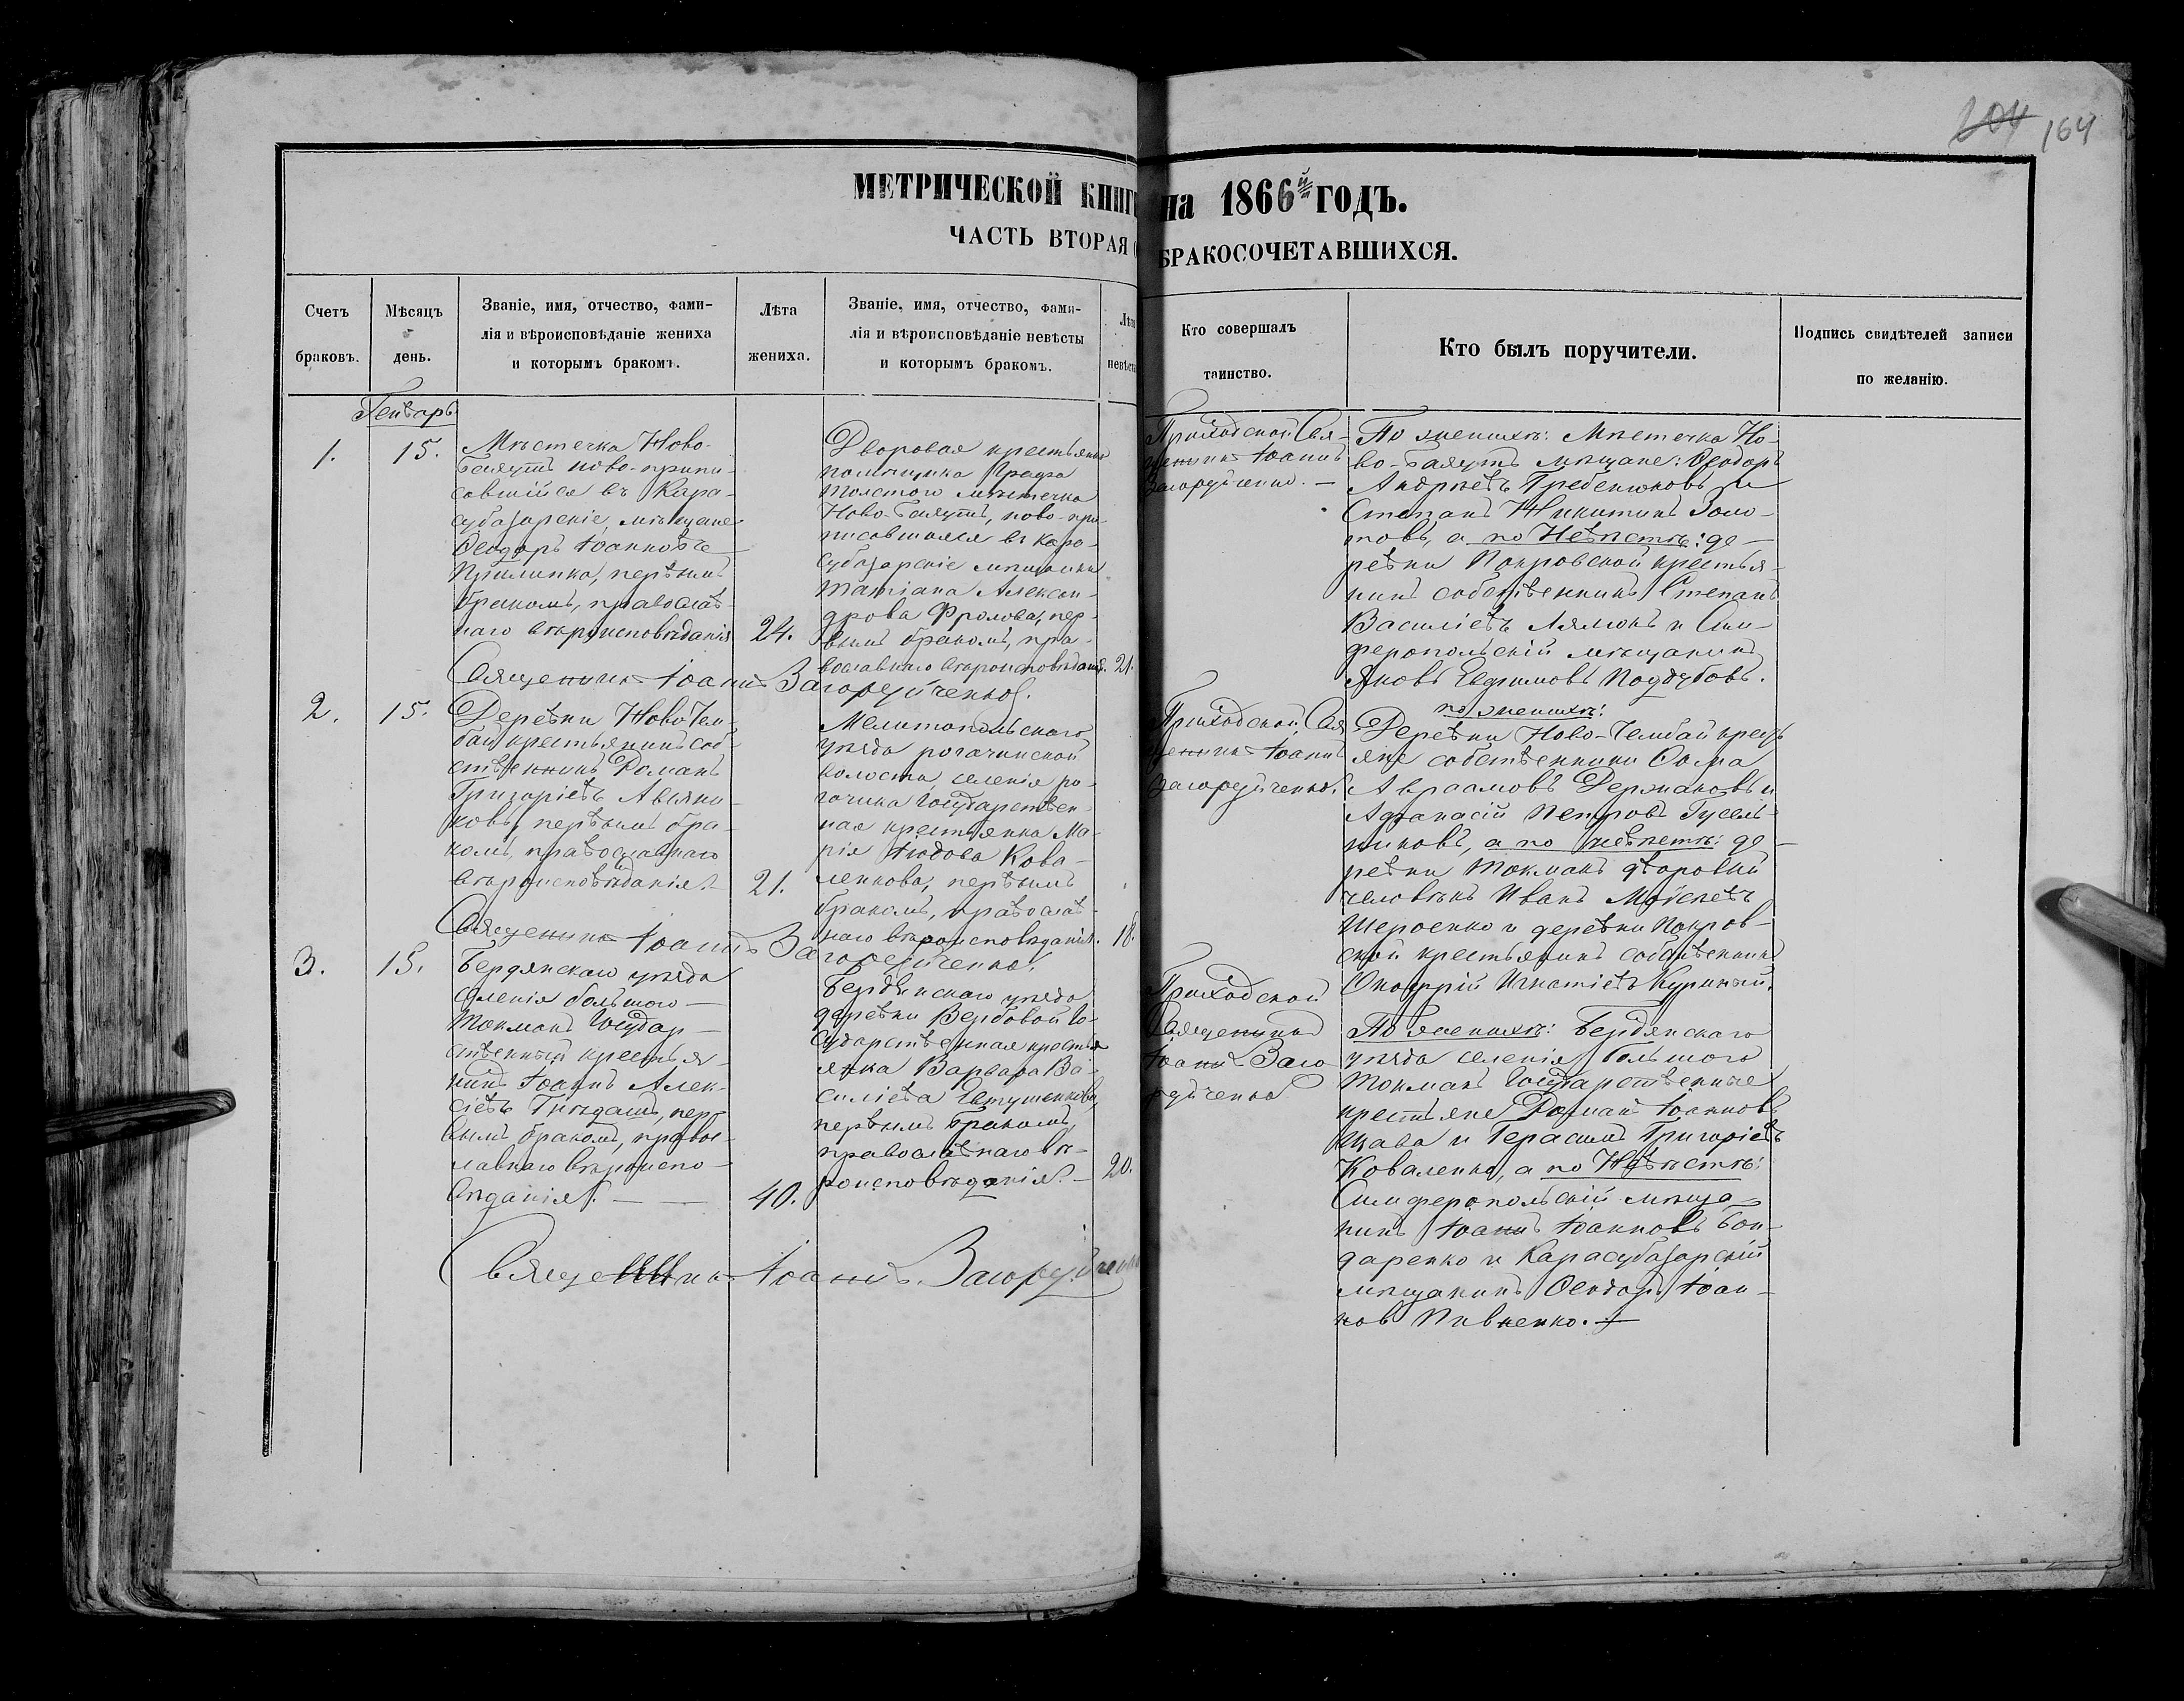 204 164
МЕТРИЧЕСКОЙ КНИГ
на 1866й ГОДЪ.
ЧАСТЬ ВТОРАЯ
БРАКОСОЧЕТАВШИХСЯ.
Счетъ
браковъ.
Мѣсяцъ
день.
Званіе, имя, отчество, фами-
лія и вѣроисповѣданіе жениха
и которымъ бракомъ.
Лѣта
жениха.
Званіе, имя, отчество, фами-
лія и вѣроисповѣданіе невѣсты
и которымъ бракомъ.
Лѣта
невѣст
Кто совершалъ
таинство.
Кто былъ поручители.
Подпись свидѣтелей записи
по желанію.
Генварь
1.
15.
Мѣстечка Ново-
ново-припи-
савшійся въ Кара-
субазарскіе мѣщане
Ѳеодоръ Іоанновъ
Прилипко, первымъ
бракомъ, православ-
наго вѣроисповѣданія
24.
Дворовая крестьянка
помѣщика Графа
Толстого мѣстечка
ново-при-
писавшаяся въ Кара-
субазарскіе мѣщанки
Татіана Алексан-
дрова Фролова, пер-
вымъ бракомъ, пра-
вославнаго вѣроисповѣданія.
21.
Приходской Свя-
щенникъ Іоаннъ
Загоруйченко. —
По женихѣ: Мѣстечка Но-
мѣщане: Ѳеодоръ
Андреевъ Гребенюковъ и
Степанъ Никитинъ Золо-
товъ, а по Невѣстѣ: де-
ревни Покровской крестья-
нинъ собственникъ Степанъ
Василіевъ Лялюкъ и Сим-
феропольскій мѣщанинъ
Яковъ Евфимовъ Поддубовъ.
Священникъ Іоаннъ Загоруйченко.
2.
15.
Деревни Ново-Чем-
бай крестьянинъ соб-
ственникъ Романъ
Григоріевъ Авсяни-
ковъ, первымъ бра-
комъ, православнаго
вѣроисповѣданія.
21.
Мелитопольскаго
уѣзда рогачинской
волости, селенія ро-
гачика Государствен-
ная крестьянка Ма-
рія Іюдова Кова-
ленкова, первымъ
бракомъ, православ-
наго вѣроисповѣданія.
18.
Приходской Свя
щенникъ Іоаннъ
Загоруйченко.
по женихѣ:
Деревни Ново-Чембай кресть
яне собственники Ѳома
Авраамовъ Держаковъ и
Аѳанасій Петровъ Гусель-
никовъ, а по невѣстѣ: де-
ревни Токмакъ дворовый
человѣкъ Иванъ Моисеевъ
Шероенко и деревни Покров-
ской крестьянинъ собственникъ
Онофрій Игнатіевъ Куриный.
Священникъ Іоаннъ Загоруйченко.
3.
15.
Бердянскаго уѣзда
селенія большого
Токмака Государ-
ственный крестья-
нинъ Іоаннъ Алек-
сіевъ Гнѣдашъ, пер-
вымъ бракомъ, правос-
лавнаго вѣроиспо-
вѣданія. —
40.
Бердянскаго уѣзда
деревни Вербовой Го-
сударственная кресть-
янка Варвара Ва-
силіева
первымъ бракомъ,
православнаго вѣ-
роисповѣданія. —
20.
Приходской
Священникъ
Іоаннъ Заго
руйченко
По женихѣ: Бердянскаго
уѣзда селенія большого
Токмака Государственные
крестьяне Романъ Іоанновъ
и Герасимъ Григоріевъ
Коваленко, а по Невѣстѣ:
Симферопольскій мѣща-
нинъ Іоаннъ Іоанновъ Бон-
даренко и Карасубазарскій
мѣщанинъ Ѳеодоръ Іоан-
новъ Пивненко. —
Священникъ Іоаннъ Загоруйченко